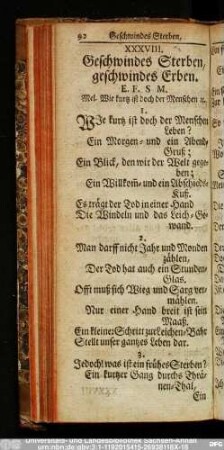 92 Geschwindes Sterben,
XXXVIII.
Geschwindes Sterben,
geschwindes Erben.
E. F. S M.
Mel. Wie kurtz ist doch der Menschen ꝛc.
1.
WIe kurtz ist doch der Menschen
Leben?
Ein Morgen- und ein Abend-
Gruß;
Ein Blick, den wir der Welt gege-
ben;
Ein Willkom̃- und ein Abschieds-
Kuß.
Es trägt der Tod in einer Hand
Die Windeln und das Leich-Ge-
wand.
2.
Man darff nicht Jahr und Monden
zählen,
Der Tod hat auch ein Stunden-
Glas,
Offt muß sich Wieg und Sarg ver-
mählen.
Nur einer Hand breit ist sein
Maaß.
Ein kleiner Schritt zur Leichen-Bahr
Stellt unser gantzes Leben dar.
3.
Jedoch! was ist ein frühes Sterben?
Ein kurtzer Gang durchs Thrä-
nen-Thal,
Ein
Universitäts- und Landesbibliothek Sachsen-Anhalt
DFG